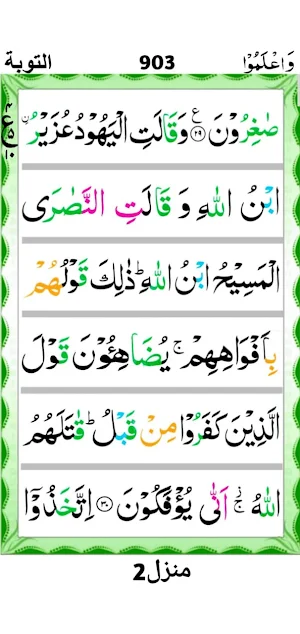 التوبة 903 وَاعْلَمُوْۤا
صٰغِرُوْنَ ۟ع ۲۹ وَقَالَتِ الْيَهُوْدُ عُزَيْرُ ۨ
ابْنُ اللّٰهِ وَ قَالَتِ النَّصٰرَى
الْمَسِيْحُ ابْنُ اللّٰهِ ؕ ذٰلِكَ قَوْلُهُمْ
بِاَفْوَاهِهِمْ ۚ يُضَاهِـُٔوْنَ قَوْلَ
الَّذِيْنَ كَفَرُوْا مِنْ قَبْلُ ؕ قٰتَلَهُمُ
اللّٰهُ ۚ اَنّٰى يُؤْفَكُوْنَ ۳۰ اِتَّخَذُوْۤا
منزل2